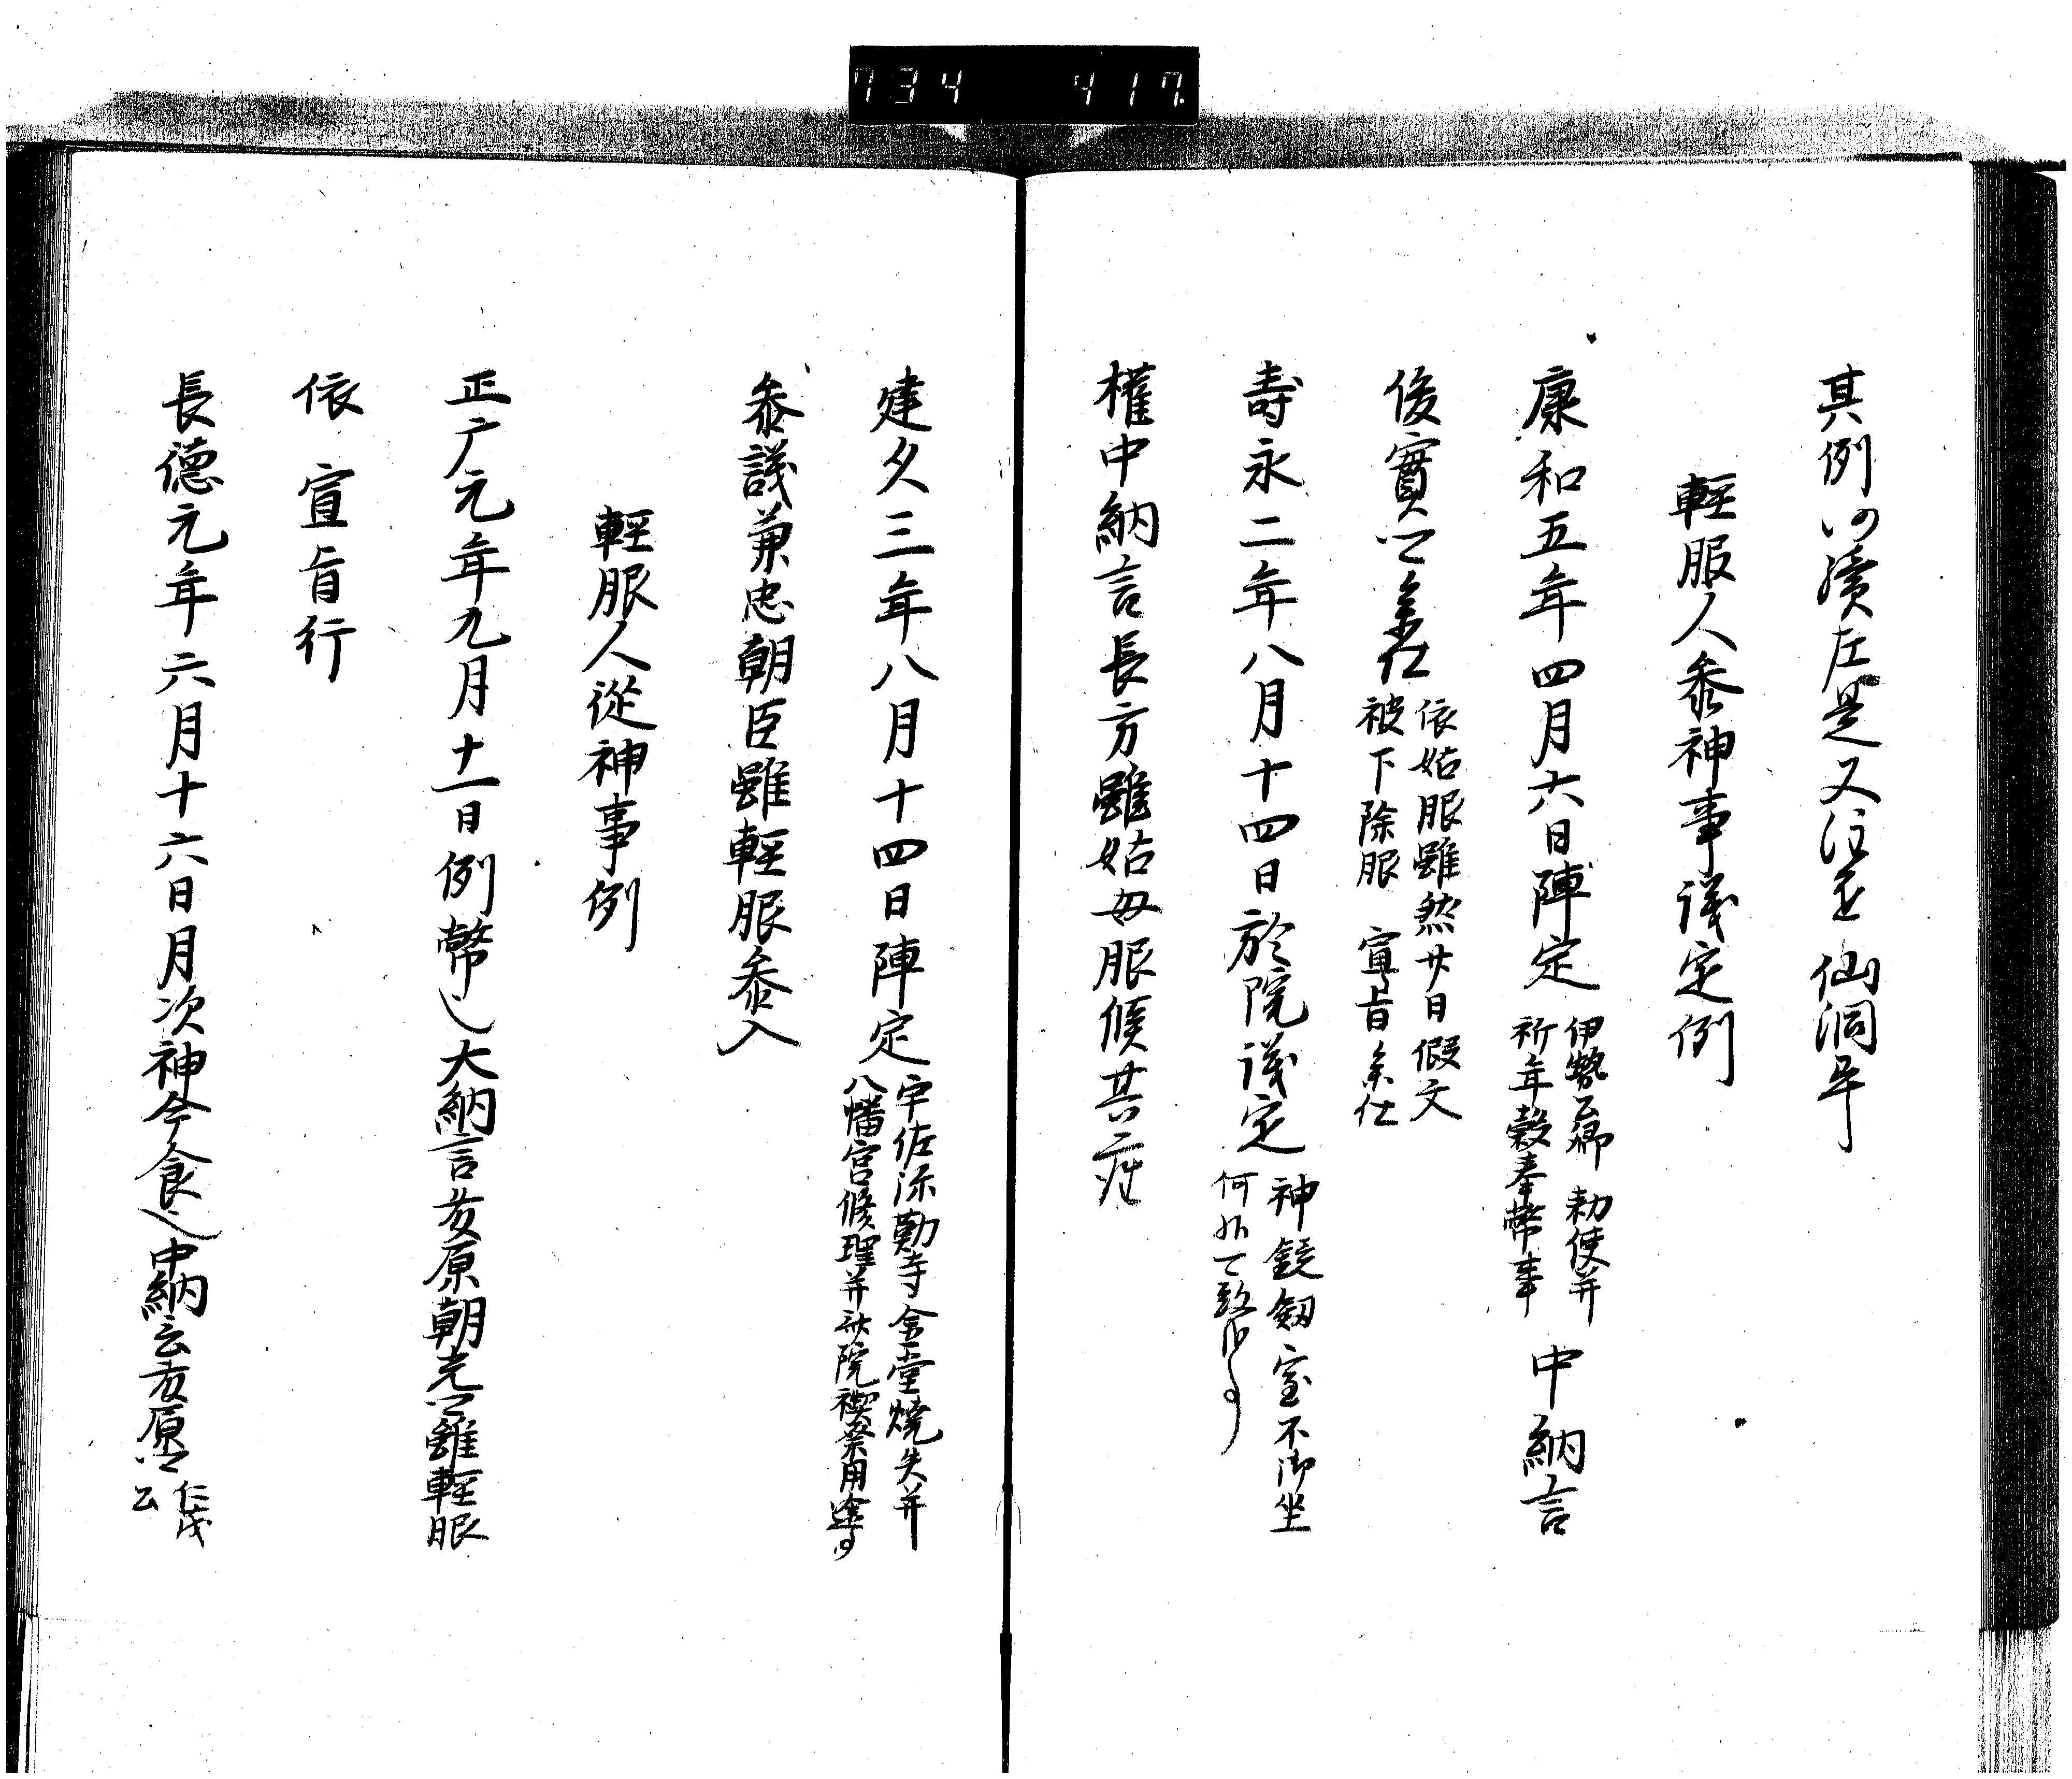 734 417
其例何潰左是又注進 仙洞乎
輕服人参神事議定例
康和五年四月六日陣定
伊勢公卿 勅使并
祈年穀奉幣事
中納言
俊實卿参仕
依姑服雖然廿日假文
被下除服 宣旨参仕
壽永二年八月十四日於院議定
神鏡劔璽不御坐
何
権中納言長方雖姑母服候其座
建久三年八月十四日陣定
宇佐弥勒寺金堂焼失并
八幡宮修理并斎院禊祭用途事
参議兼忠朝臣雖輕服参入
輕服人従神事例
正广元年九月十一日例幣也大納言藤原朝光卿雖輕服
依 宣旨行
長德元年六月十六日月次神今食也中納言藤原卿
云